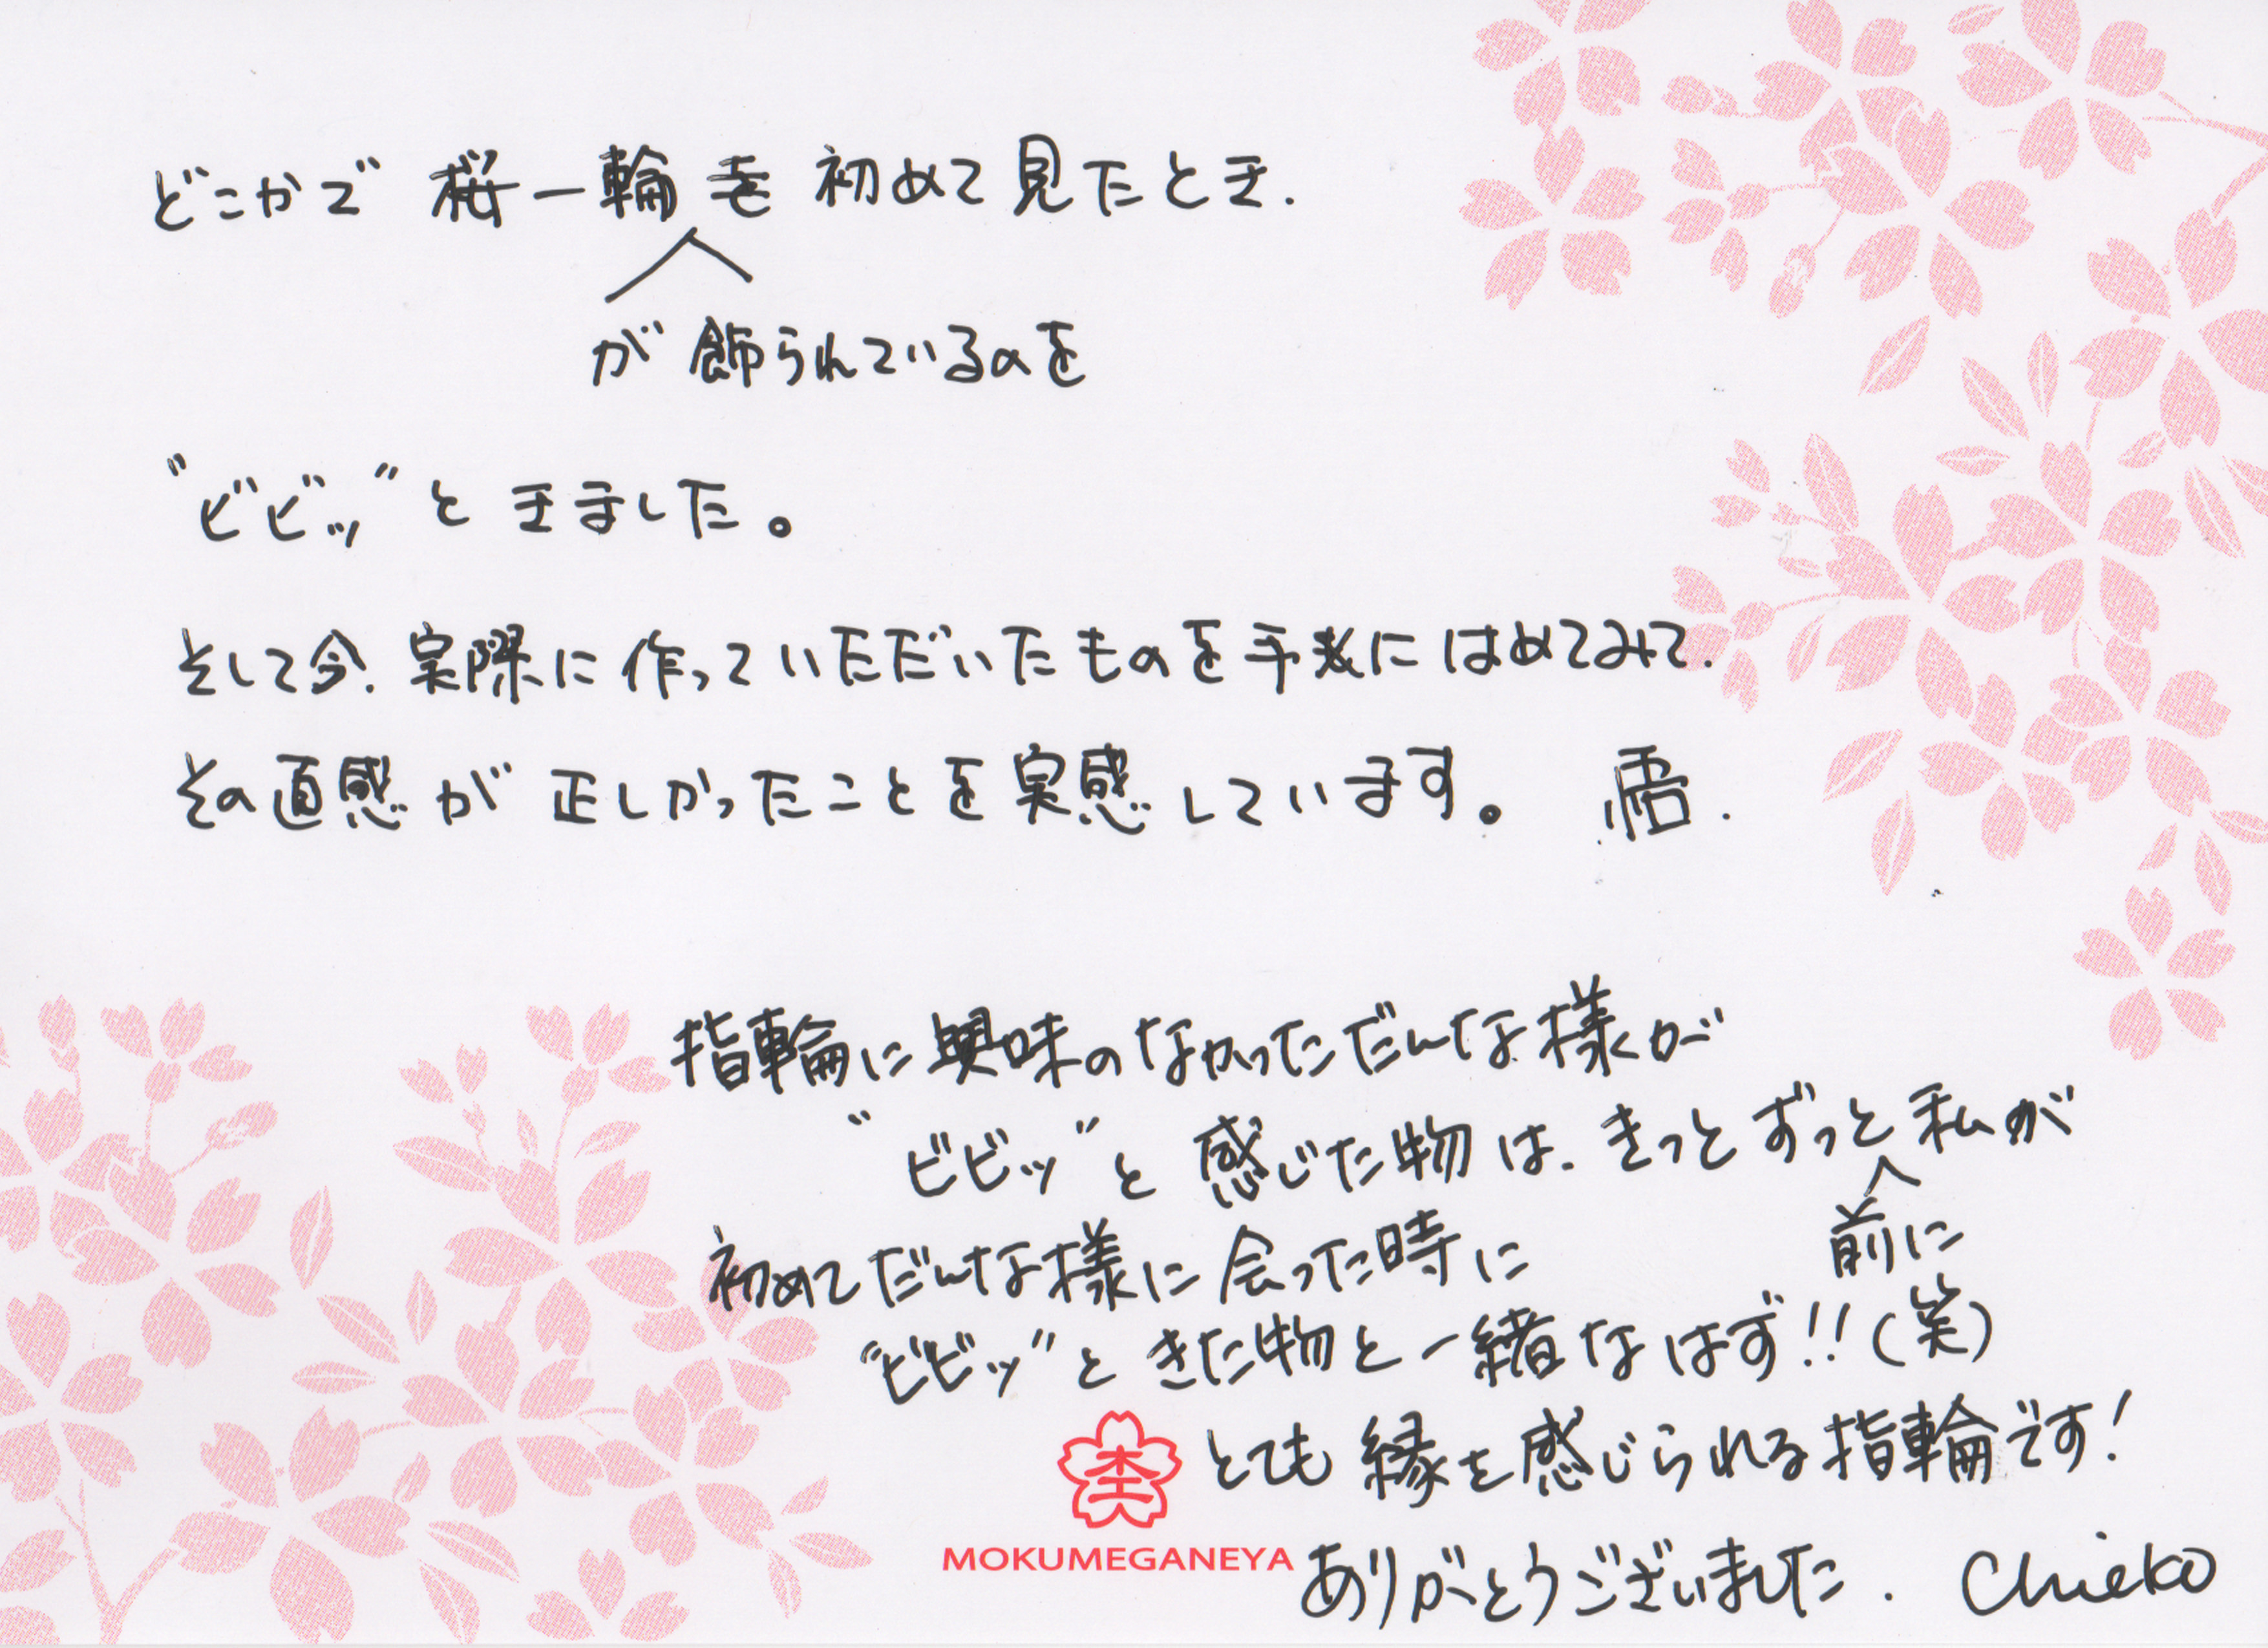 どこかで 桜一輪を 初めて見たとき.
が飾られているのを
"ビビッ"と きました。
そして今、実際に作っていただいたものを手にはめてみて、
その直感が正しかったことを実感しています。 悟.
指輪に興味のなかっただんな様が
"ビビッ"と感じた物は、きっとずっと私が
前に
初めてだんな様に会った時に
"ビビッ"ときた物と一緒なはず!!(笑)
とても縁を感じられる指輪です!
MOKUMEGANEYA
ありがとうございました. Chieko